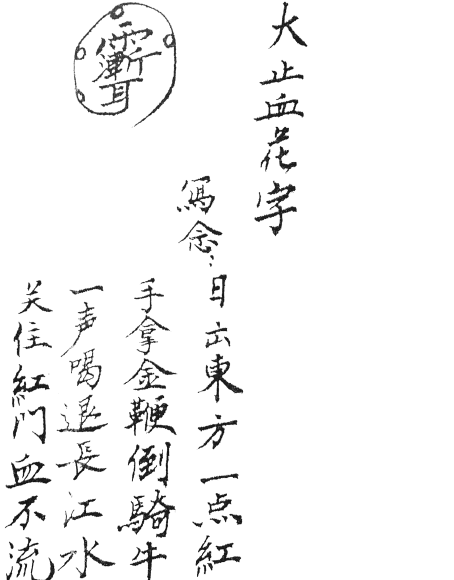 大止血花字
寫念：日出東方一点紅
手拿金鞭倒騎牛
一声喝退長江水
关住紅门血不流